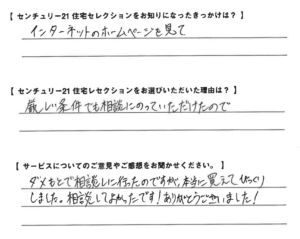 【 センチュリー21 住宅セレクションをお知りになったきっかけは？ 】
インターネットのホームページを見て
【 センチュリー21 住宅セレクションをお選びいただいた理由は？ 】
厳しい条件でも相談にのっていただけたので
【 サービスについてのご意見やご感想をお聞かせください。 】
ダメもとで相談しに行ったのですが、本当に買えてびっくり
しました。相談してよかったです！ありがとうございました！